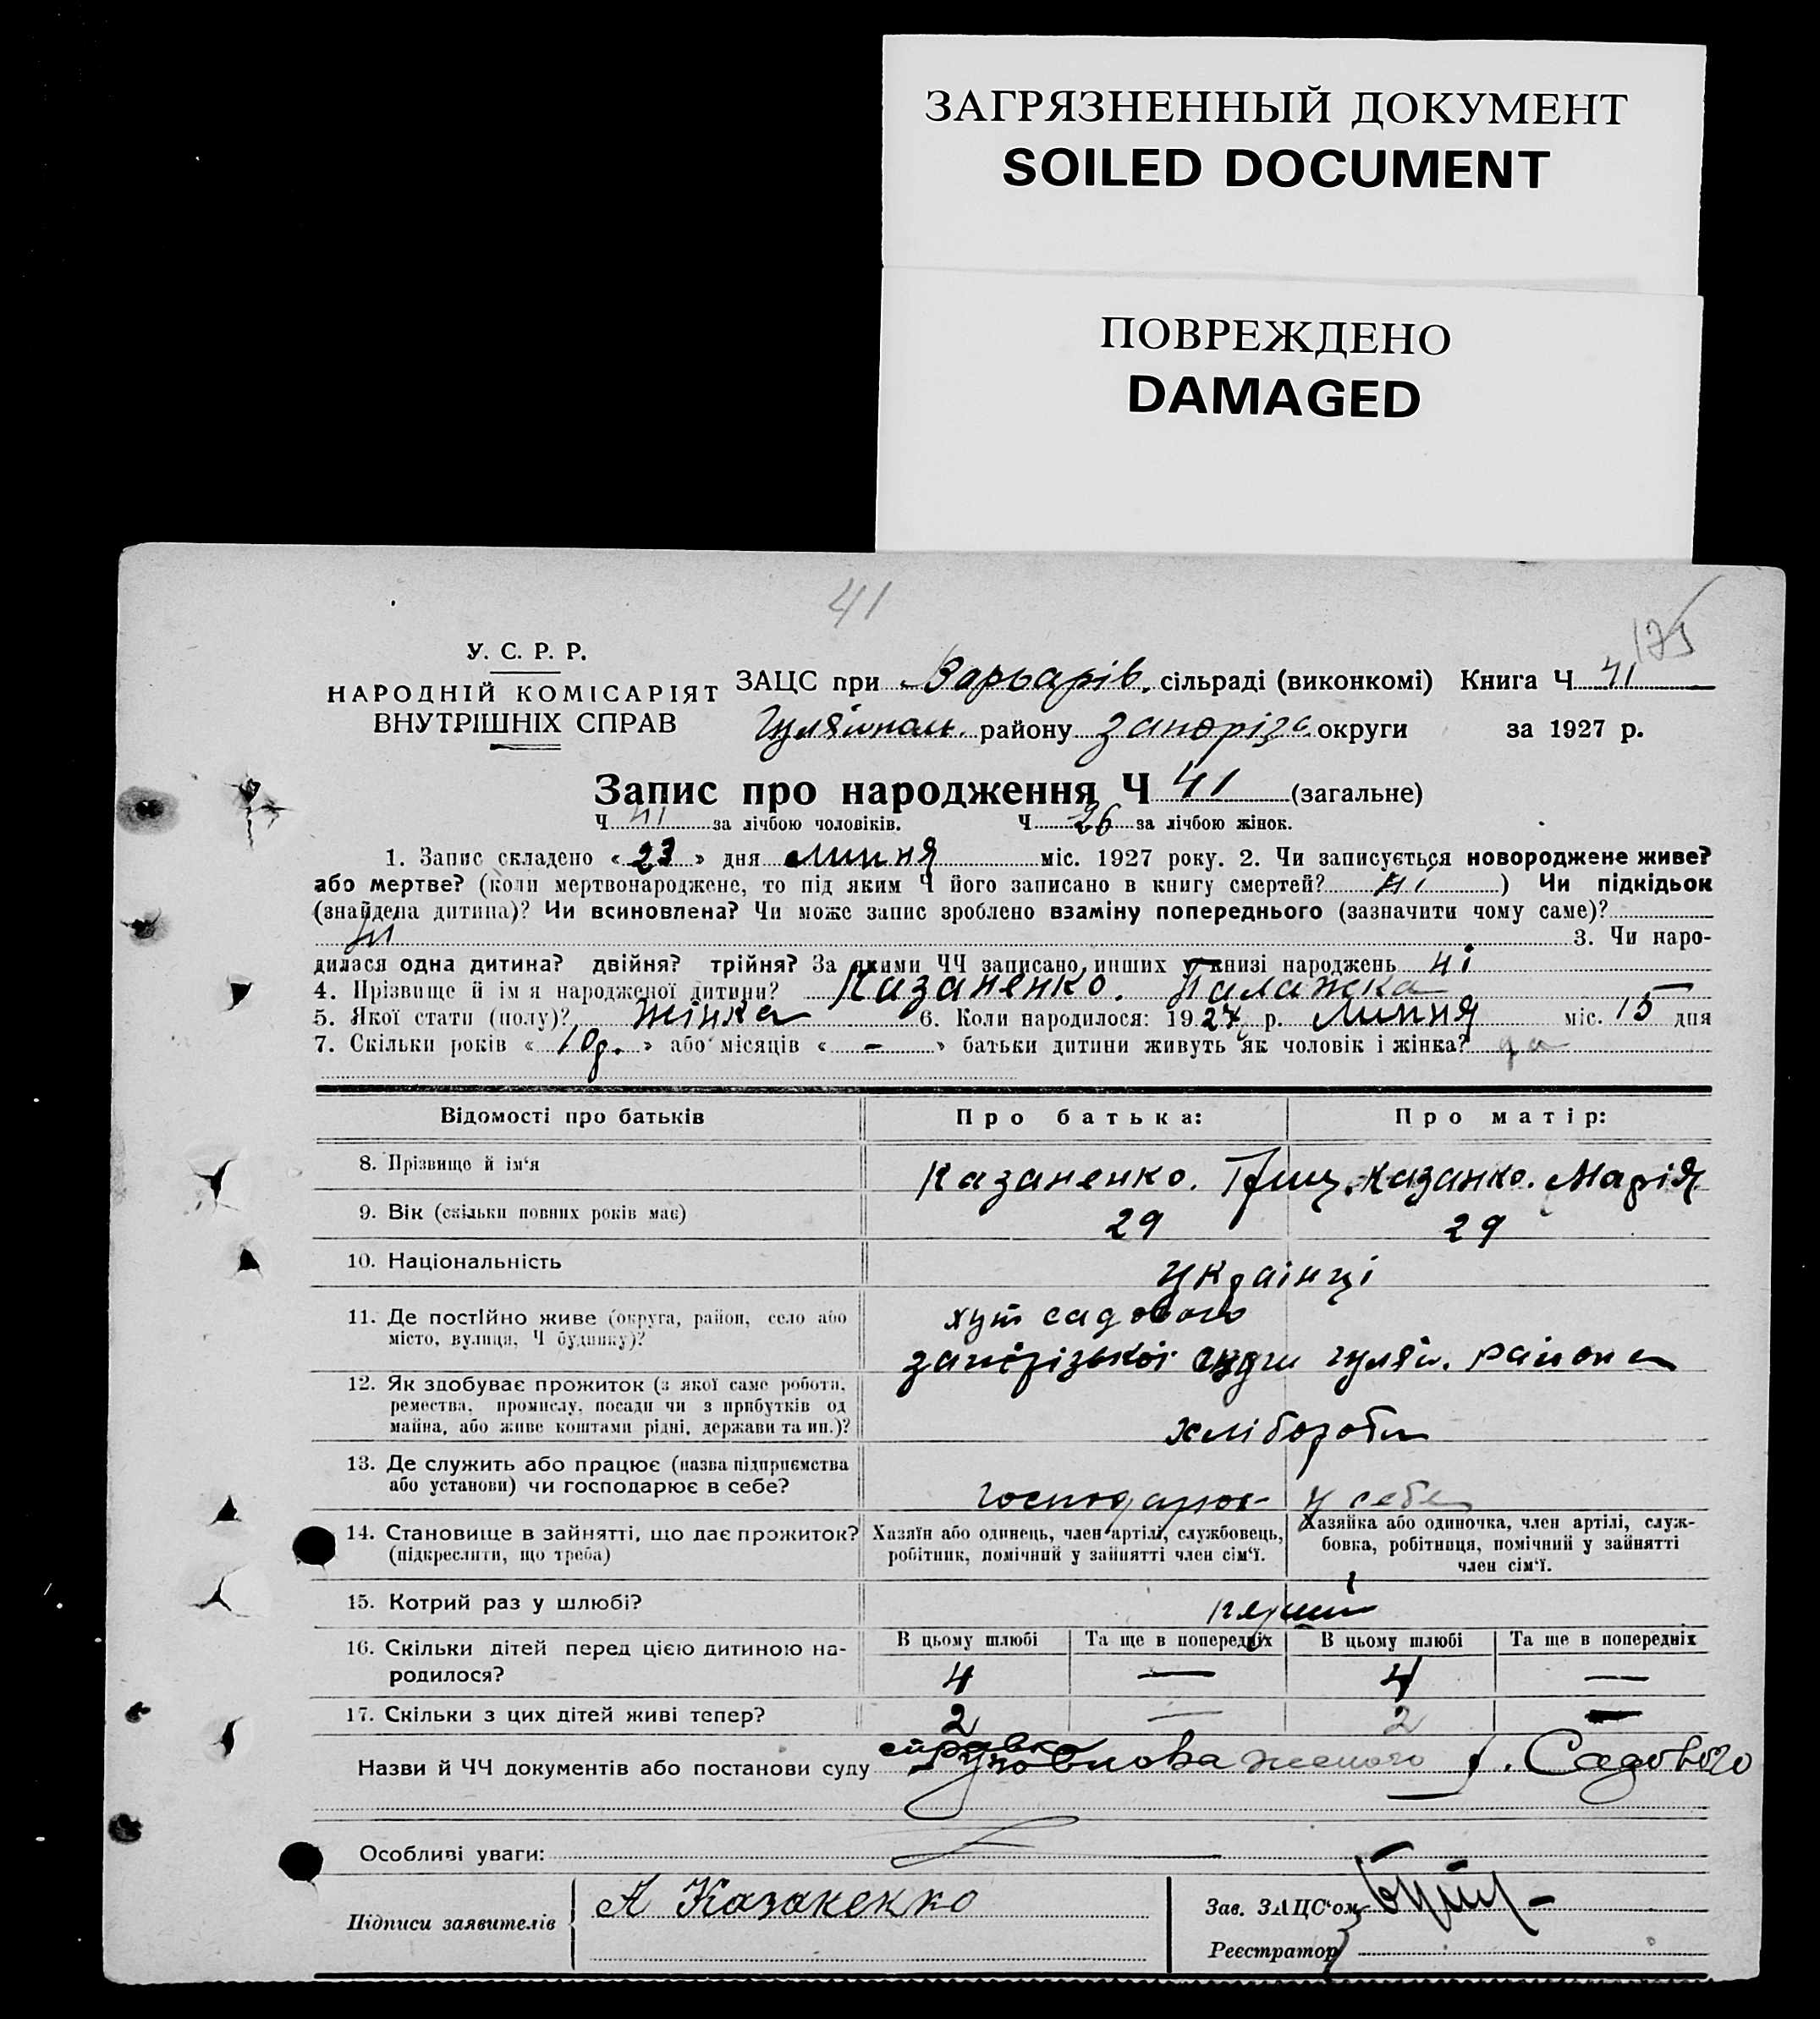 ЗАГРЯЗНЕННЫЙ ДОКУМЕНТ
SOILED DOCUMENT
ПОВРЕЖДЕНО
DAMAGED
41
175
У. С. Р. Р.
НАРОДНІЙ КОМІСАРІЯТ
ВНУТРІШНІХ СПРАВ
ЗАЦС при Варварів. сільраді (виконкомі) Книга Ч 41
Гуляйпол. району Запоріз. округи за 1927 р.
Запис про народження Ч 41 (загальне)
Ч 41 за лічбою чоловіків. Ч 26 за лічбою жінок.
1. Запис складено « 23 » дня липня міс. 1927 року. 2. Чи записується новороджене живе?
або мертве? (коли мертвонароджене, то під яким Ч його записано в книгу смертей? ні ) Чи підкідьок
(знайдена дитина)? Чи всиновлена? Чи може запис зроблено взаміну попереднього (зазначити чому саме)?
ні 3. Чи наро-
дилася одна дитина? двійня? трійня? За якими ЧЧ записано инших у книзі народжень ні
4. Прізвище й ім я народженої дитини? Казаненко. Палажка
5. Якої стати (полу)? жінка 6. Коли народилося: 1927 р. липня міс. 15 дня
7. Скільки років « 10р. » або місяців « - » батьки дитини живуть як чоловік і жінка? да
Відомості про батьків Про батька: Про матір:
8. Прізвище й ім‘я Казаненко. Гриц. Казанко. Марія
9. Вік (скільки повних років має) 29 29
10. Національність Українці
11. Де постійно живе (округа, район, село або хут садового
місто, вулиця, Ч будинку)? запорізької округи гуляй. района
12. Як здобуває прожиток (з якої саме роботи,
ремества, промислу, посади чи з прибутків од
майна, або живе коштами рідні, держави та ин.)? хлібороби
13. Де служить або працює (назва підприємства
або установи) чи господарює в себе? господарює у себе
14. Становище в зайнятті, що дає прожиток? Хазяїн або одинець, член артілі, службовець, Хазяйка або одиночка, член артілі, служ-
(підкреслити, що треба) робітник, помічний у зайнятті член сім‘ї. бовка, робітниця, помічний у зайнятті
член сім‘ї.
15. Котрий раз у шлюбі? перший
16. Скільки дітей перед цією дитиною на- В цьому шлюбі Та ще в попередніх В цьому шлюбі Та ще в попередніх
родилося? 4 — 4 —
17. Скільки з цих дітей живі тепер? 2 — 2 —
справка
Назви й ЧЧ документів або постанови суду Уповноваженого х. Садового
Особливі уваги:
Підписи заявителів А Казаненко Зав. ЗАЦС‘ом
Реєстратор